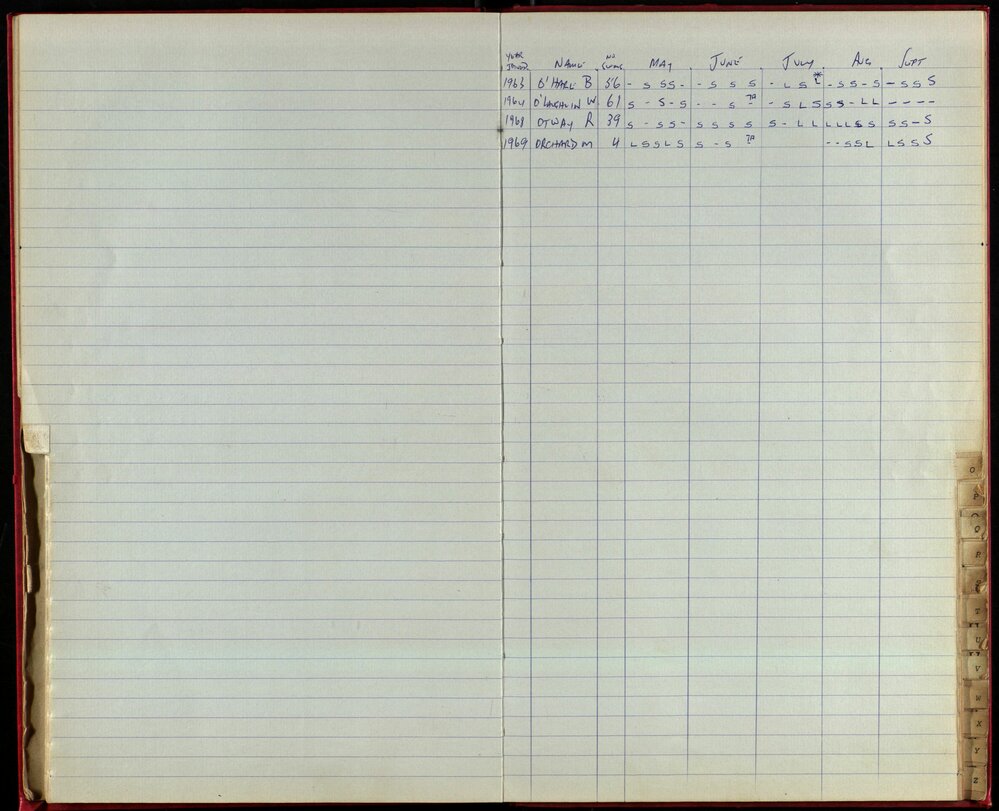 YEAR JOINED NAME NO SWIMS MAY JUNE JULY AUG SEPT
1963 O'HARE B 56 - S SS - - S S S - L S L* - SS - S - SS S
1964 O'LAUGHLIN W 61 S - S - S - - S - TR - S L S S S - L L - - - -
1968 OTWAY R 39 S - SS - S S S S S - L L L L L S S SS - S
1969 ORCHARD M 4 L S S L S S - S TR - - S S L L S S S
O
P
Q
R
S
T
U
V
W
X
Y
Z